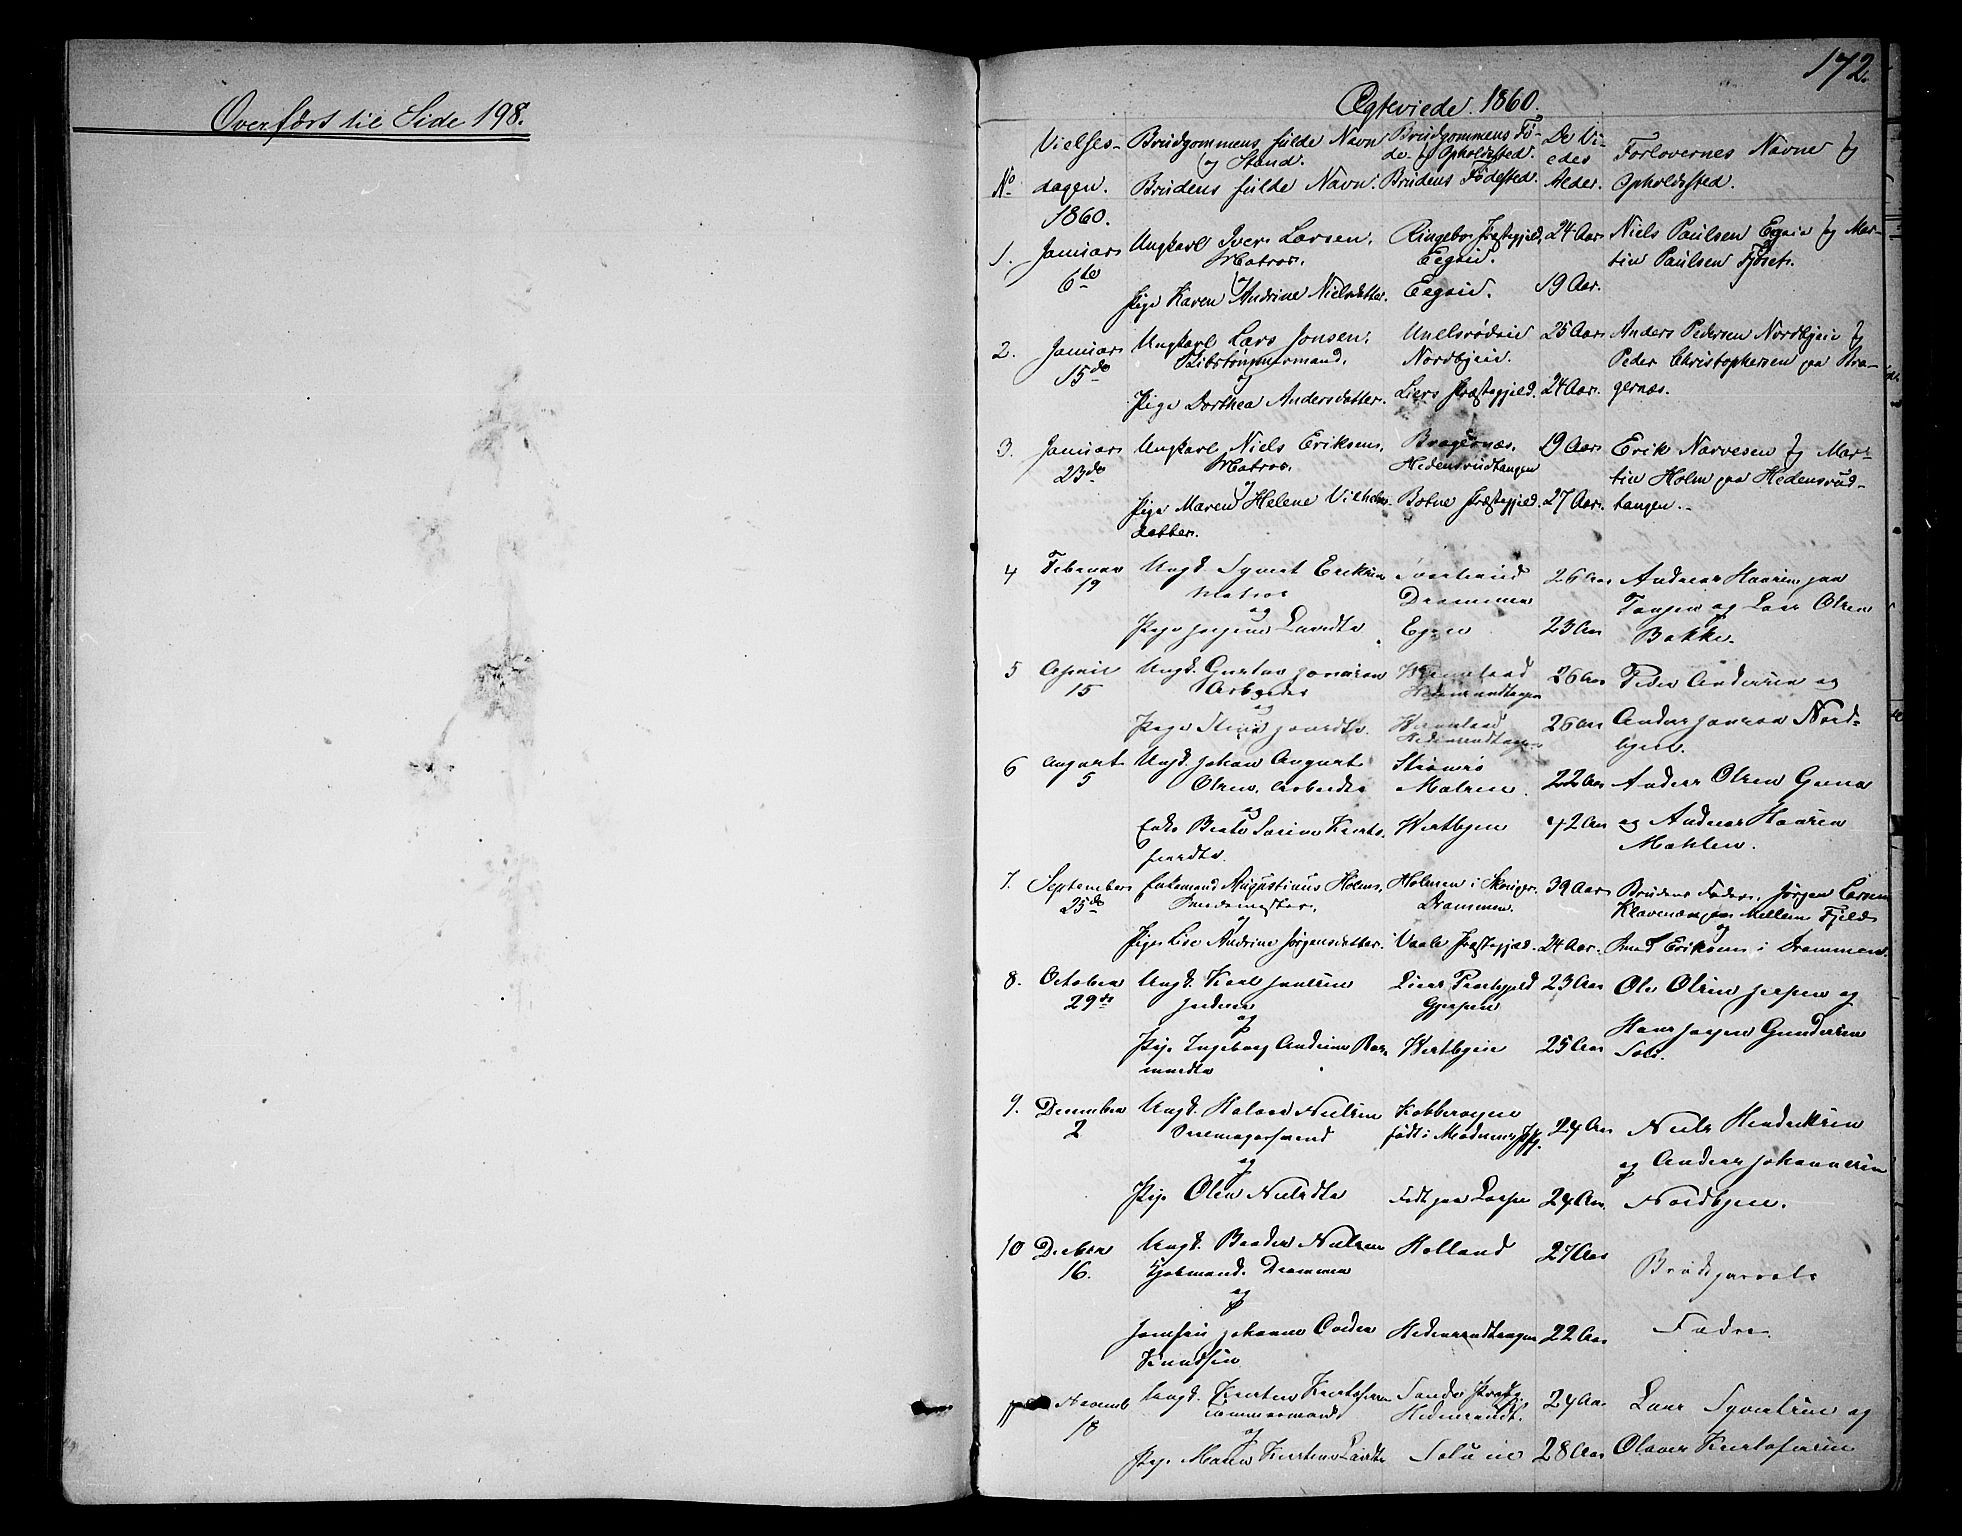 Overført til Side 198.
172.
Ægteviede 1860.
No
Vielses-
dagen.
Brudgommens fulde Navn
og Stand.
Brudens fulde Navn.
Brudgommens Fø-
de- og Opholdssted.
Brudens Fødested.
De Vi-
edes
Alder.
Forlovernes Navne og
Opholdssted.
1860.
1. Januar
6te
Ungkarl Iver Larsen,
Matros.
og
Pige Karen Andrine Nielsdatter.
Ringebo Præstegjeld,
Eegeie.
Eegeie.
24 Aar
19 Aar.
Niels Paulsen Egeie og Mar-
tin Paulsen Fjøset.
2. Januar
15de
Ungkarl Lars Jonsen,
og
Pige Dorthea Andersdatter.
Nordbyeie.
Liers Præstegjeld.
25 Aar
24 Aar.
Anders Pedersen Nordbyeie og
Peder Christophersen paa Bra-
gernæs.
3. Januar
23de
Ungkarl Niels Eriksen,
Matros.
og
Pige Maren Helene Vilhelms-
datter.
Bragernæs.
Hedensrudtangen
Botne Præstegjeld.
19 Aar
27 Aar.
Erik Narvesen og Mar-
tin Holm paa Hedensrud-
tangen.
4 Februar
19
Ungk. Syvert Eriksen
Matros
og
Pige Jørgine Larsdtr
Drammen
26 Aar
23 Aar
Andreas Hansen paa
Tangen og Lars Olsen
Bakke.
5 April
15
Ungk. Gustav Jonsson
Arbeider
og
Pige
Vermeland
Hedensrudtagen
Vermeland
Hedensrudtagen
26 Aar
26 Aar
Peder Andersen og
Anders Jonsson Nord-
byeie.
6 August
5
Ungk. Johan August
Olsen, Arbeider
og
Enke Beate Karine Kristo-
fersdtr
Strømsø
Vestbyeie
22 Aar
42 Aar
Anders Olsen
og Andreas Hansen
7. September
25de
Enkemand Augustinus Holm,
og
Pige Lise Andrine Jørgensdatter.
Holmen i Skoger.
Drammen.
Vaale Præstegjeld.
39 Aar
24 Aar.
Brudens Fader, Jørgen Larsen
Klavenæs paa Mellem Fjeld
og
Knud Eriksen i Drammen.
8. October
29de
Ungk. Karl Paulsen
og
Pige Ingeborg Andrine Ras-
musdtr
Liers Præstegjeld
Gjerpen
Vestbyeie
23 Aar
25 Aar
Ole Olsen Jerpen og
Hans Jørgen Gundersen
9. December
2
Ungk. Halvor Nielsen
og
Pige Olea Nielsdtr
født i Modums Pgj.
Født paa
24 Aar
24 Aar.
Niels Hendriksen
og Anders Johannesen
Nordbyeie.
10 Decbr
16.
Ungk. Nielsen
Sjømand. Drammen
og
Jomfru Johanne
Knudsen
Holland
Hedensrudtangen
27 Aar
22 Aar
Fædre.
11 Novemb
18
Ungk. Kristen Kristofersen
Tømmermand
og
Pige Maren Kirstine Larsdtr
Sande Præstgj.
Hedensrudt.
28 Aar
24 Aar
Lars Syvertsen og
Olaves Kristofersen